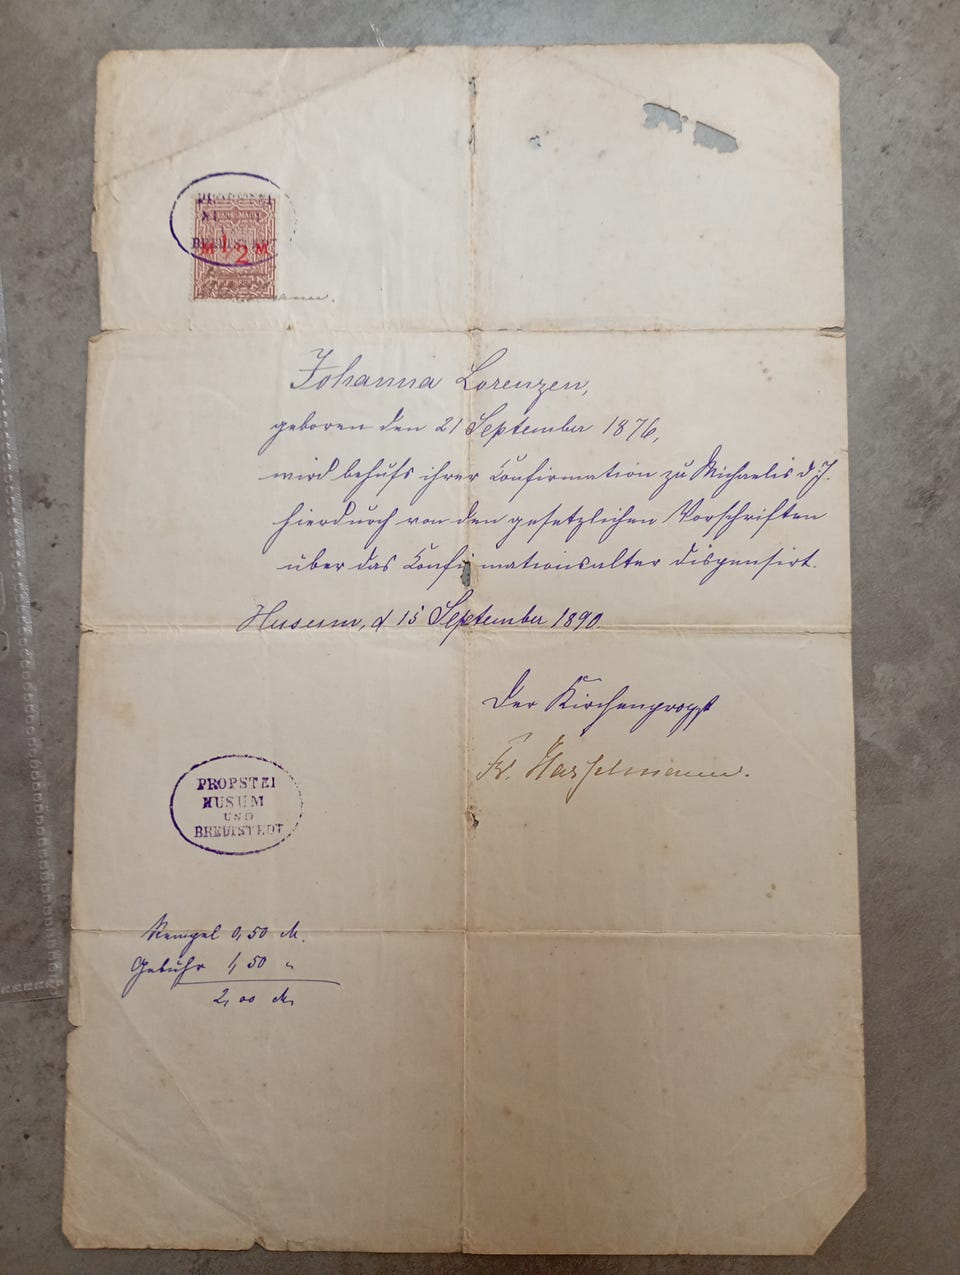 M 1/2 M
Johanna Lorenzen,
geboren den 21 September 1876,
wird behufs ihrer Confirmation zu Michaelis d. J.
hierdurch von den gesetzlichen Vorschriften
über das Confirmationsalter dispensirt.
Husum, d 15 September 1890.
Der Kirchenpropst
Fr. Hasselmann.
PROPSTEI
HUSUM
UND
BREDTSTEDT
Stempel 0,50 M.
Gebühr 1,50 "
2,00 M.